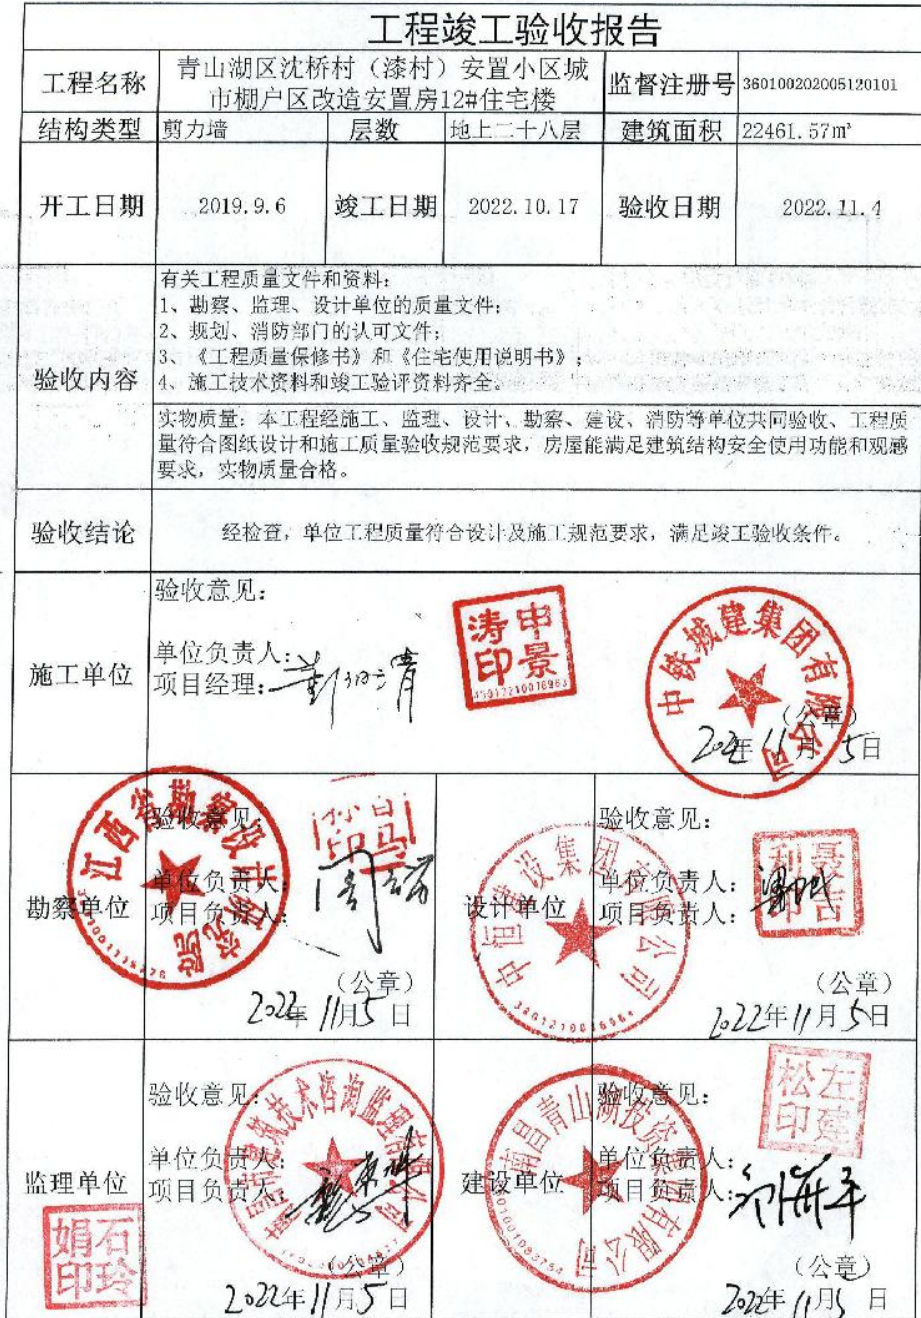 工程竣工验收报告
工程名称 青山湖区沈桥村（漆村）安置小区城市棚户区改造安置房12#住宅楼 监督注册号 360100202005120101
结构类型 剪力墙 层数 地上二十八层 建筑面积 22461.57m²
开工日期 2019.9.6 竣工日期 2022.10.17 验收日期 2022.11.4
验收内容
有关工程质量文件和资料：
1、勘察、监理、设计单位的质量文件；
2、规划、消防部门的认可文件；
3、《工程质量保修书》和《住宅使用说明书》；
4、施工技术资料和竣工验评资料齐全。
实物质量：本工程经施工、监理、设计、勘察、建设、消防等单位共同验收、工程质
量符合图纸设计和施工质量验收规范要求，房屋能满足建筑结构安全使用功能和观感
要求，实物质量合格。
验收结论 经检查，单位工程质量符合设计及施工规范要求，满足竣工验收条件。
施工单位
验收意见：
单位负责人：
项目经理：
申景涛印
中铁城建集团有限公司
（公章）
2022年11月5日
勘察单位
验收意见：
单位负责人：
项目负责人：
江西省勘察设计研究院
（公章）
2022年11月5日
设计单位
验收意见：
单位负责人：
项目负责人：
中恒建设集团有限公司
（公章）
2022年11月5日
监理单位
验收意见：
单位负责人：
项目负责人：
石玲娟印
建筑技术咨询监理有限公司
（公章）
2022年11月5日
建设单位
验收意见：
单位负责人：
项目负责人：
左建松印
南昌青山湖投资集团有限公司
（公章）
2022年11月5日